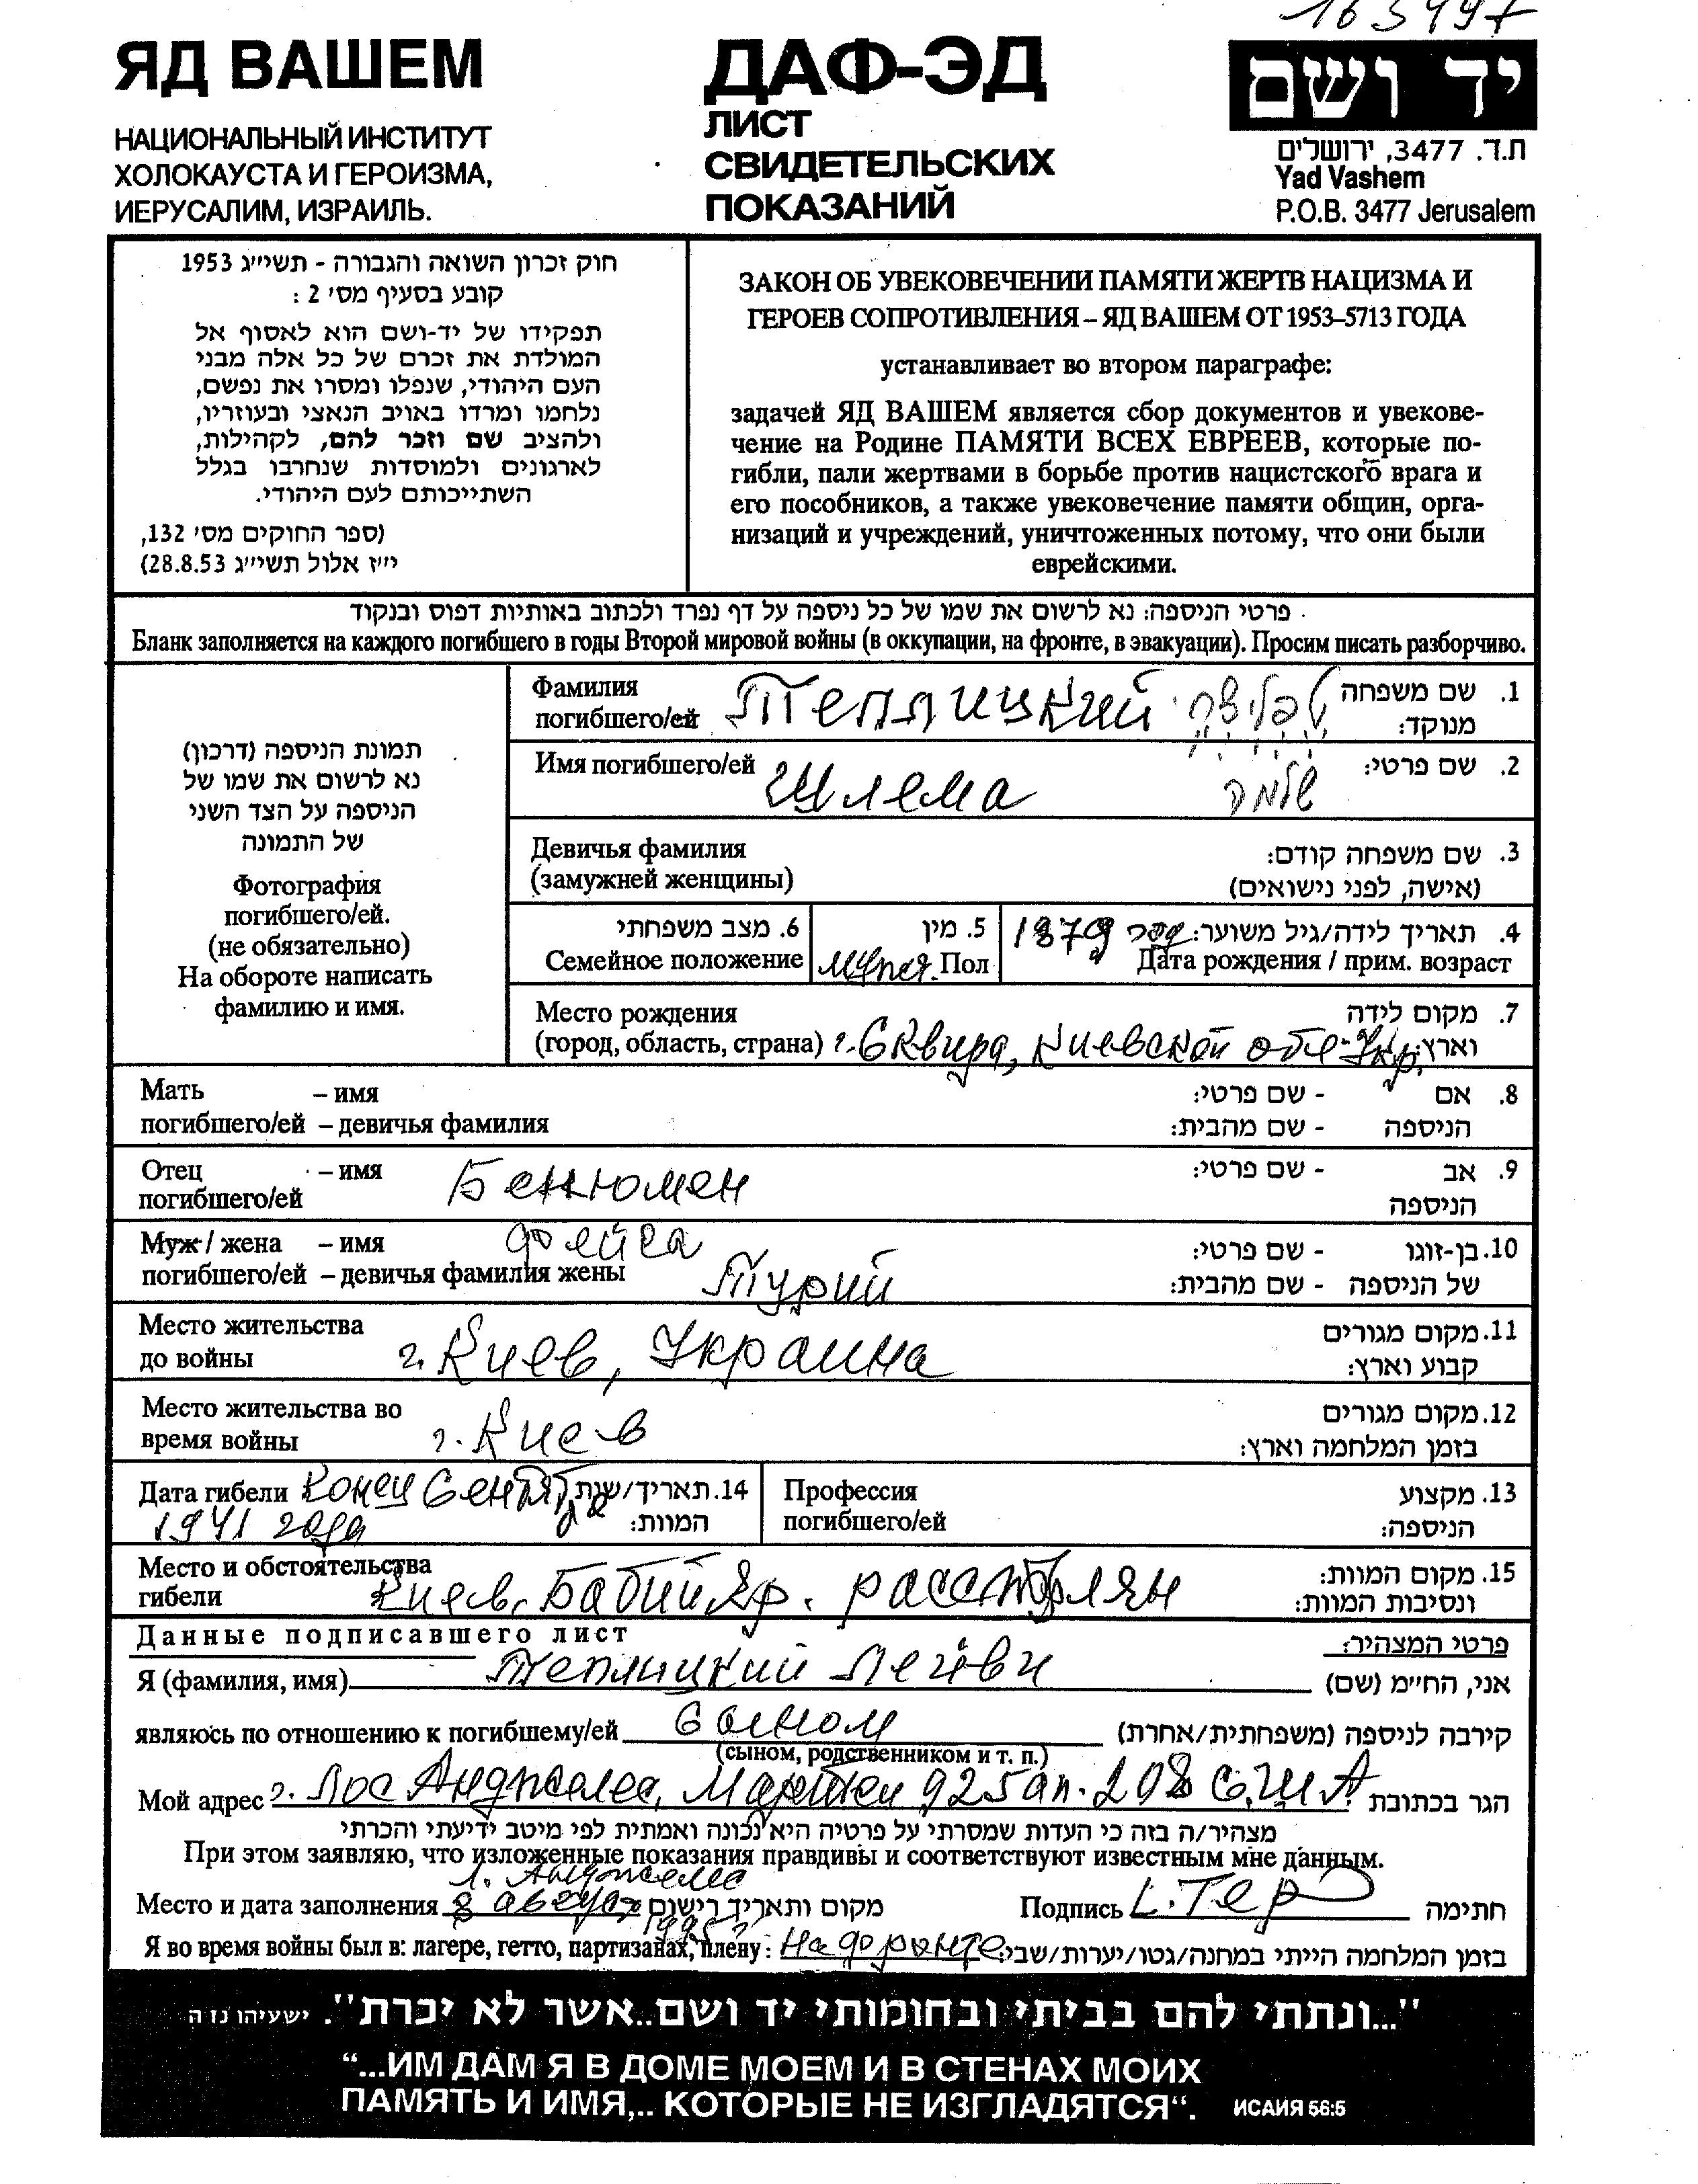 ЯД ВАШЕМ
НАЦИОНАЛЬНЫЙ ИНСТИТУТ
ХОЛОКАУСТА И ГЕРОИЗМА,
ИЕРУСАЛИМ, ИЗРАИЛЬ.
ДАФ-ЭД
ЛИСТ
СВИДЕТЕЛЬСКИХ
ПОКАЗАНИЙ
יד ושם
ת.ד. 3477, ירושלים
Yad Vashem
P.O.B. 3477 Jerusalem
חוק זכרון השואה והגבורה - תשי״ג 1953
קובע בסעיף מס׳ 2 :
תפקידו של יד-ושם הוא לאסוף אל
המולדת את זכרם של כל אלה מבני
העם היהודי, שנפלו ומסרו את נפשם,
נלחמו ומרדו באויב הנאצי ובעוזריו,
ולהציב שם וזכר להם, לקהילות,
לארגונים ולמוסדות שנחרבו בגלל
השתייכותם לעם היהודי.
(ספר החוקים מס׳ 132,
י״ז אלול תשי״ג 28.8.53)
ЗАКОН ОБ УВЕКОВЕЧЕНИИ ПАМЯТИ ЖЕРТВ НАЦИЗМА И
ГЕРОЕВ СОПРОТИВЛЕНИЯ – ЯД ВАШЕМ ОТ 1953–5713 ГОДА
устанавливает во втором параграфе:
задачей ЯД ВАШЕМ является сбор документов и увекове-
чение на Родине ПАМЯТИ ВСЕХ ЕВРЕЕВ, которые по-
гибли, пали жертвами в борьбе против нацистского врага и
его пособников, а также увековечение памяти общин, орга-
низаций и учреждений, уничтоженных потому, что они были
еврейскими.
פרטי הניספה: נא לרשום את שמו של כל ניספה על דף נפרד ולכתוב באותיות דפוס ובנקוד
Бланк заполняется на каждого погибшего в годы Второй мировой войны (в оккупации, на фронте, в эвакуации). Просим писать разборчиво.
תמונת הניספה (דרכון)
נא לרשום את שמו של
הניספה על הצד השני
של התמונה
Фотография
погибшего/ей.
(не обязательно)
На обороте написать
фамилию и имя.
Фамилия
погибшего/ей Теплицкий
1. שם משפחה
מנוקד:
Имя погибшего/ей Шлема שלמה 2. שם פרטי:
Девичья фамилия
(замужней женщины)
3. שם משפחה קודם:
(אישה, לפני נישואים)
6. מצב משפחתי
Семейное положение
5. מין
Пол
4. תאריך לידה/גיל משוער: 1879 год
Дата рождения / прим. возраст
Место рождения
(город, область, страна) г. Сквира, Киевской обл. Укр.
7. מקום לידה
וארץ:
Мать – имя
погибшего/ей – девичья фамилия
8. אם - שם פרטי:
הניספה - שם מהבית:
Отец – имя Бенюмен
погибшего/ей
9. אב - שם פרטי:
הניספה
Муж / жена – имя Фейга
погибшего/ей – девичья фамилия жены Турий
10. בן-זוגו - שם פרטי:
של הניספה - שם מהבית:
Место жительства
до войны г. Киев, Украина
11. מקום מגורים
קבוע וארץ:
Место жительства во
время войны г. Киев
12. מקום מגורים
בזמן המלחמה וארץ:
Дата гибели Конец Сентября
1941 года
14. תאריך/שנת
המוות:
Профессия
погибшего/ей
13. מקצוע
הניספה:
Место и обстоятельства
гибели Киев. Бабий Яр. расстрелян
15. מקום המוות:
ונסיבות המוות:
Данные подписавшего лист
פרטי המצהיר:
Я (фамилия, имя) Теплицкий Лейви אני, החי״מ (שם)
являюсь по отношению к погибшему/ей Сыном קירבה לניספה (משפחתית/אחרת)
(сыном, родственником и т. п.)
Мой адрес г. Лос Анджелес, 925 ап. 208 С.Ш.А. הגר בכתובת
מצהיר/ה בזה כי העדות שמסרתי על פרטיה היא נכונה ואמתית לפי מיטב ידיעתי והכרתי
При этом заявляю, что изложенные показания правдивы и соответствуют известным мне данным.
Л. Анджелес
Место и дата заполнения 8 август 1995 г. מקום ותאריך רישום Подпись L. Тер חתימה
Я во время войны был в: лагере, гетто, партизанах, плену: На фронте בזמן המלחמה הייתי במחנה/גטו/יערות/שבי:
"...ונתתי להם בביתי ובחומותי יד ושם..אשר לא יכרת". ישעיהו נז ה
“...ИМ ДАМ Я В ДОМЕ МОЕМ И В СТЕНАХ МОИХ
ПАМЯТЬ И ИМЯ,.. КОТОРЫЕ НЕ ИЗГЛАДЯТСЯ“. ИСАИЯ 56:5